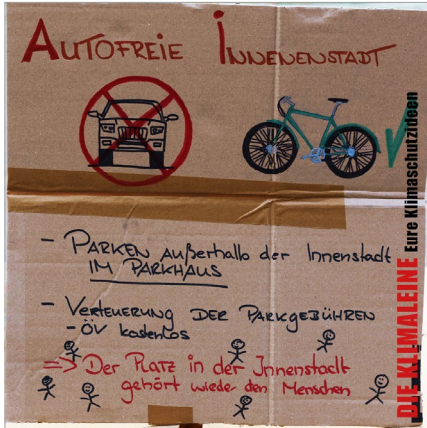 AUTOFREIE INNENENSTADT
- PARKEN außerhalb der Innenstadt
IM PARKHAUS
- VERTEUERUNG DER PARKGEBÜHREN
- ÖV kostenlos
=> Der PLATZ in der Innenstadt
gehört wieder den Menschen
DIE KLIMALEINE Eure Klimaschutzideen